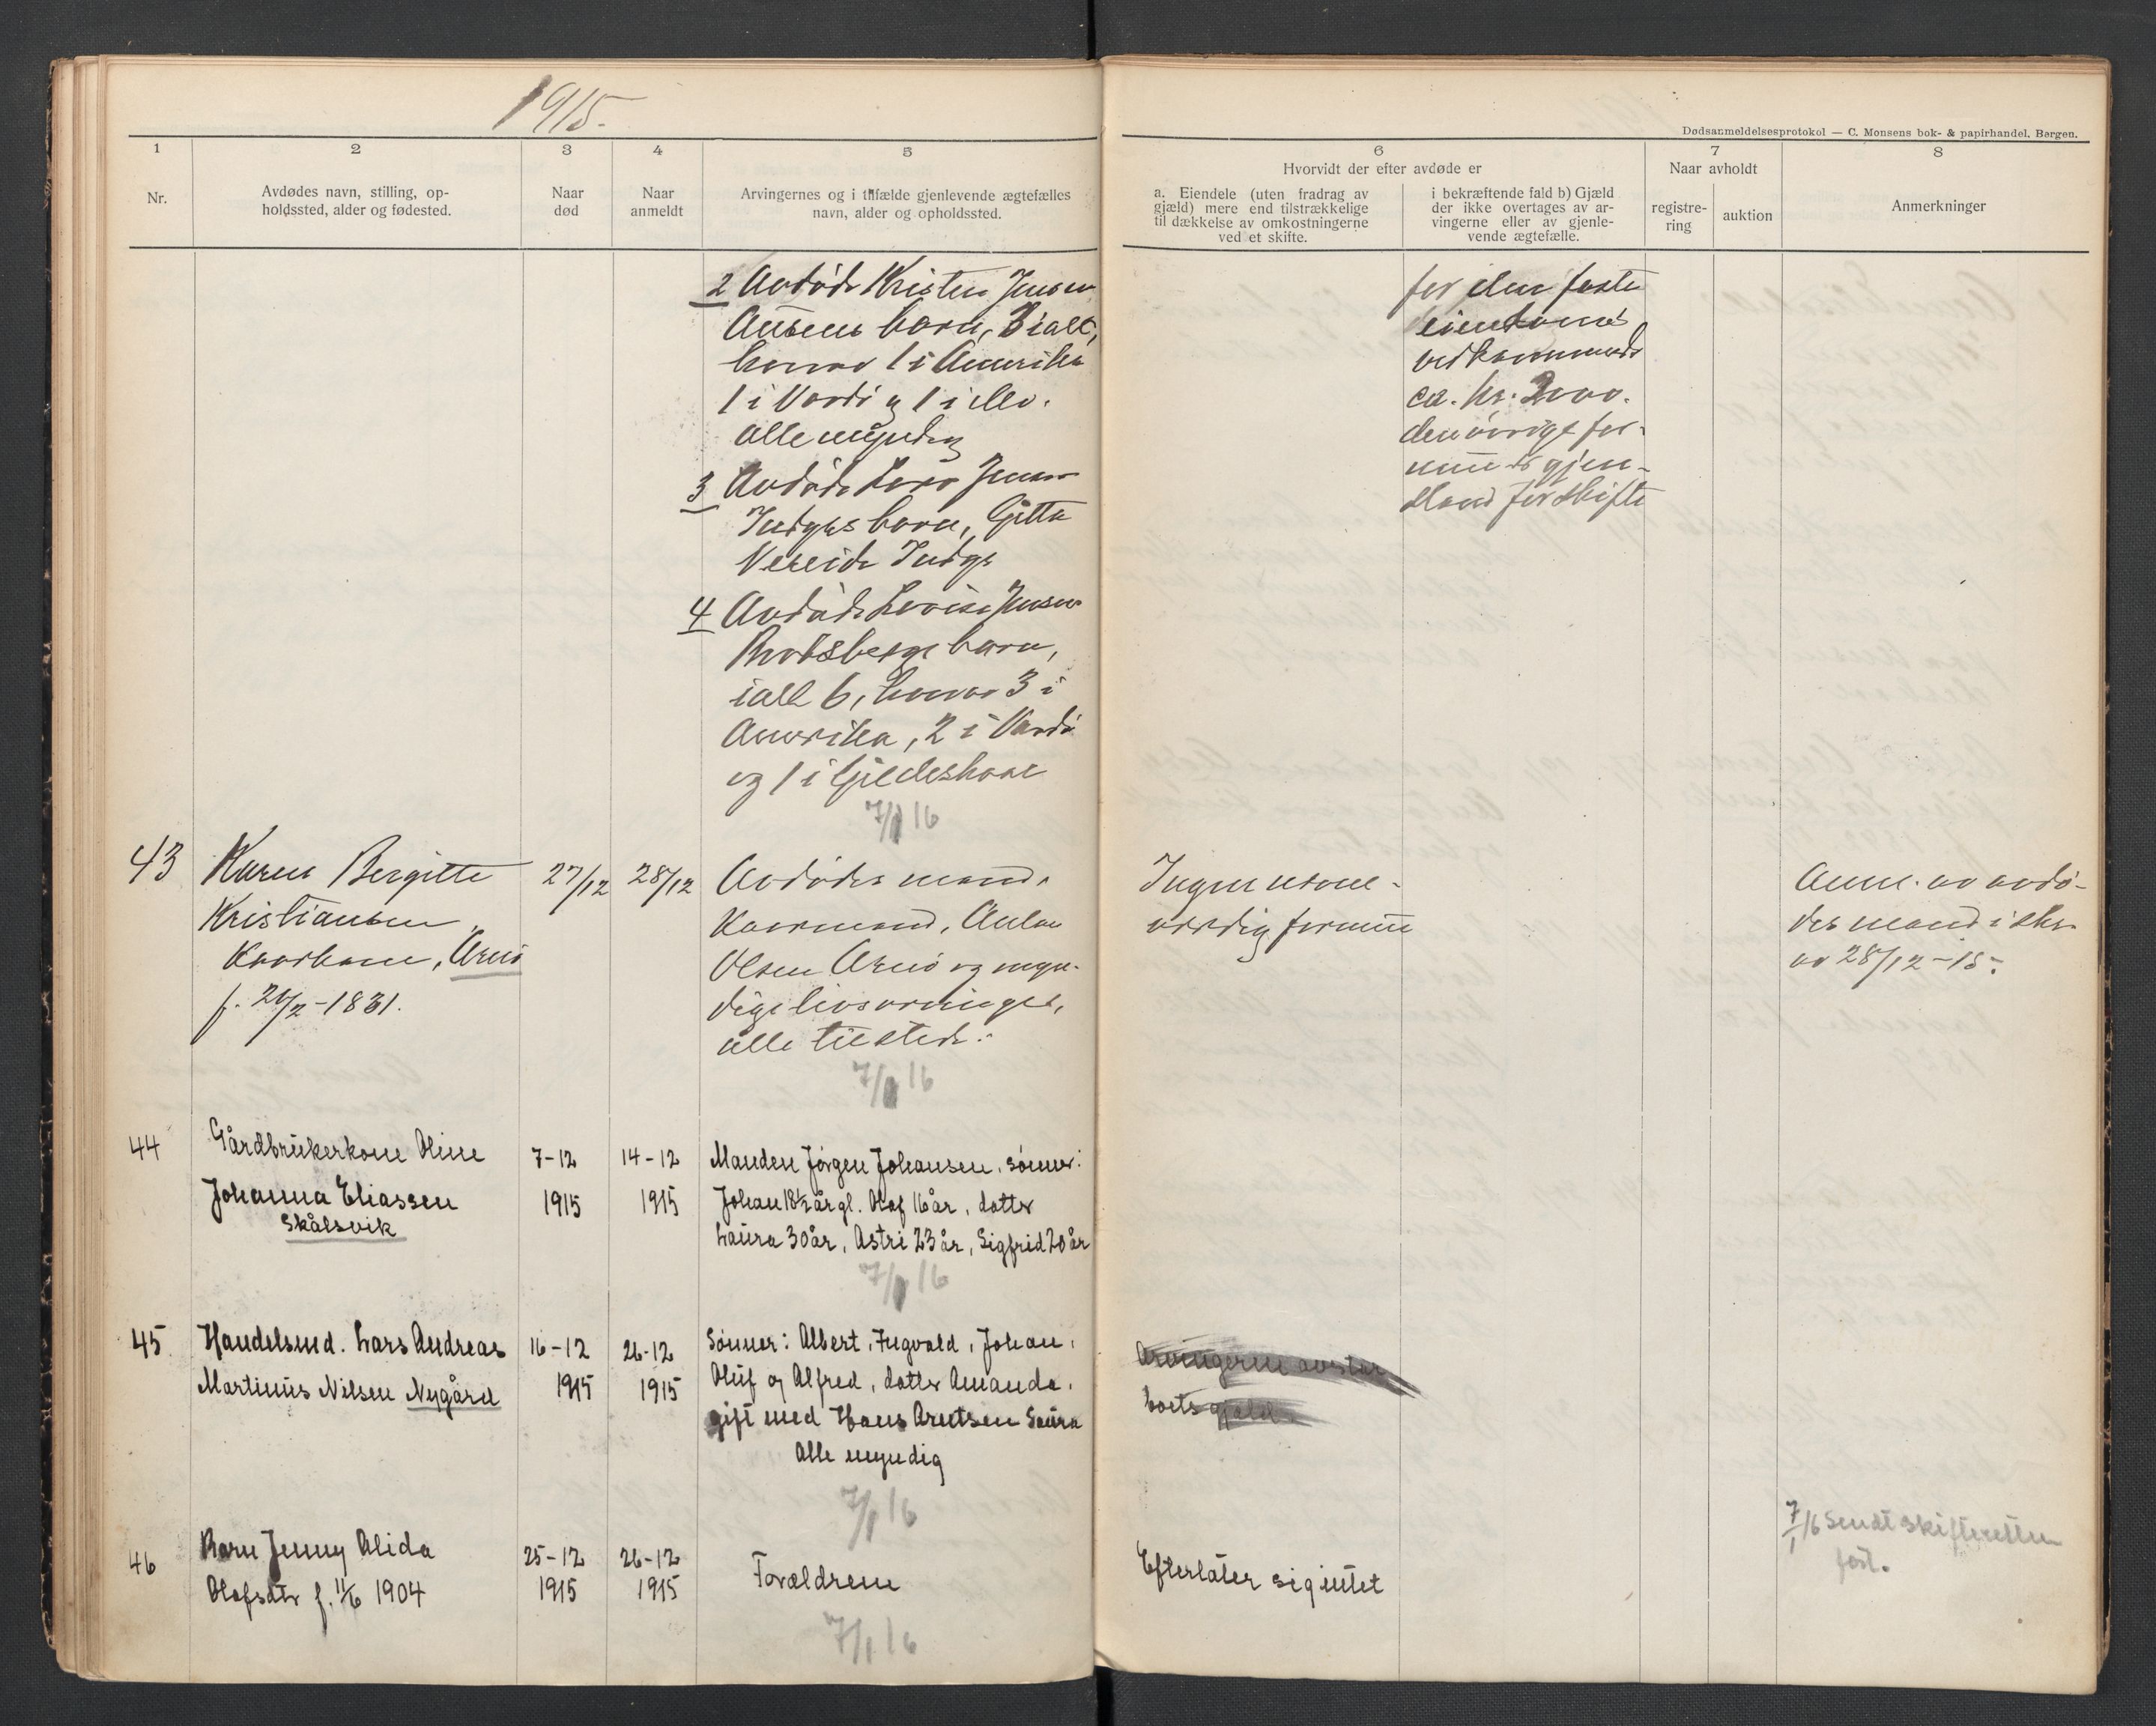 1915.
Dødsanmeldelsesprotokol — C. Monsens bok- & papirhandel, Bergen.
1
2
3
4
5
6
7
8
Nr.
Avdødes navn, stilling, op-
holdssted, alder og fødested.
Naar
død
Naar
anmeldt
Arvingernes og i tilfælde gjenlevende ægtefælles
navn, alder og opholdssted.
Hvorvidt der efter avdøde er
a. Eiendele (uten fradrag av
gjæld) mere end tilstrækkelige
til dækkelse av omkostningerne
ved et skifte.
i bekræftende fald b) Gjæld
der ikke overtages av ar-
vingerne eller av gjenle-
vende ægtefælle.
Naar avholdt
registre-
ring
auktion
Anmerkninger
2 Avdøde Kristen Jensen
børn, 3 ialt,
hvorav 1 i Amerika
1 i Vardø og 1 i
alle myndig
3 Avdøde Jensen
børn, Gitta
4 Avdøde Lovise Jensen
børn,
ialt 6, hvorav 3 i
Amerika, 2 i Vardø
og 1 i Gildeskaal
7/1 16
for den faste
eiendoms
vedkommende
ca. kr. 2000.
den øvrige for-
mue er gjen-
stand for skifte
43
Karen Bergitte
Kristiansen
Kaarkone, Arnø
f. 21/2-1831.
27/12
28/12
Avdødes mand,
Kaarmand, Anton
Olsen Arnø og myn-
dige livsarvinger,
alle tilstede.
7/1 16
Ingen nævne-
værdig formue
Anm. av avdø-
des mand i skr.
av 28/12-15.
44
Gårdbrukerkone Oline
Johanna Eliassen
Skålsvik
7-12
1915
14-12
1915
Manden Jørgen Johansen, sønner:
Johan 18½ år gl. Olaf 16 år, døtter
Laura 30 år, Astri 23 år, Sigfrid 20 år
7/1 16
45
Handelsmd. Lars Andreas
Martinus Nilsen Nygård
16-12
1915
26-12
1915
Sønner: Albert, Ingvald, Johan,
Oluf og Alfred, datter Amanda,
gift med Hans Arntsen Saura
Alle myndig
7/1 16
Arvingerne avstår
boets gjæld
7/1 16 Sendt skifteretten
46
Barn Jenny Alida
Olafsdtr f. 11/6 1904
25-12
1915
26-12
1915
Forældrene
7/1 16
Efterlater sig intet